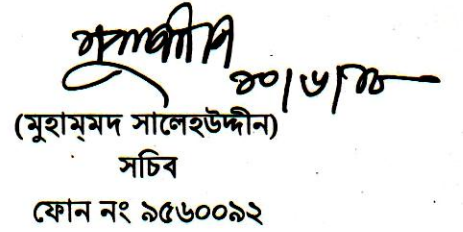 (মুহাম্মদ সালেহউদ্দীন)
সচিব
ফোন নং ৯৫৬০০৯২